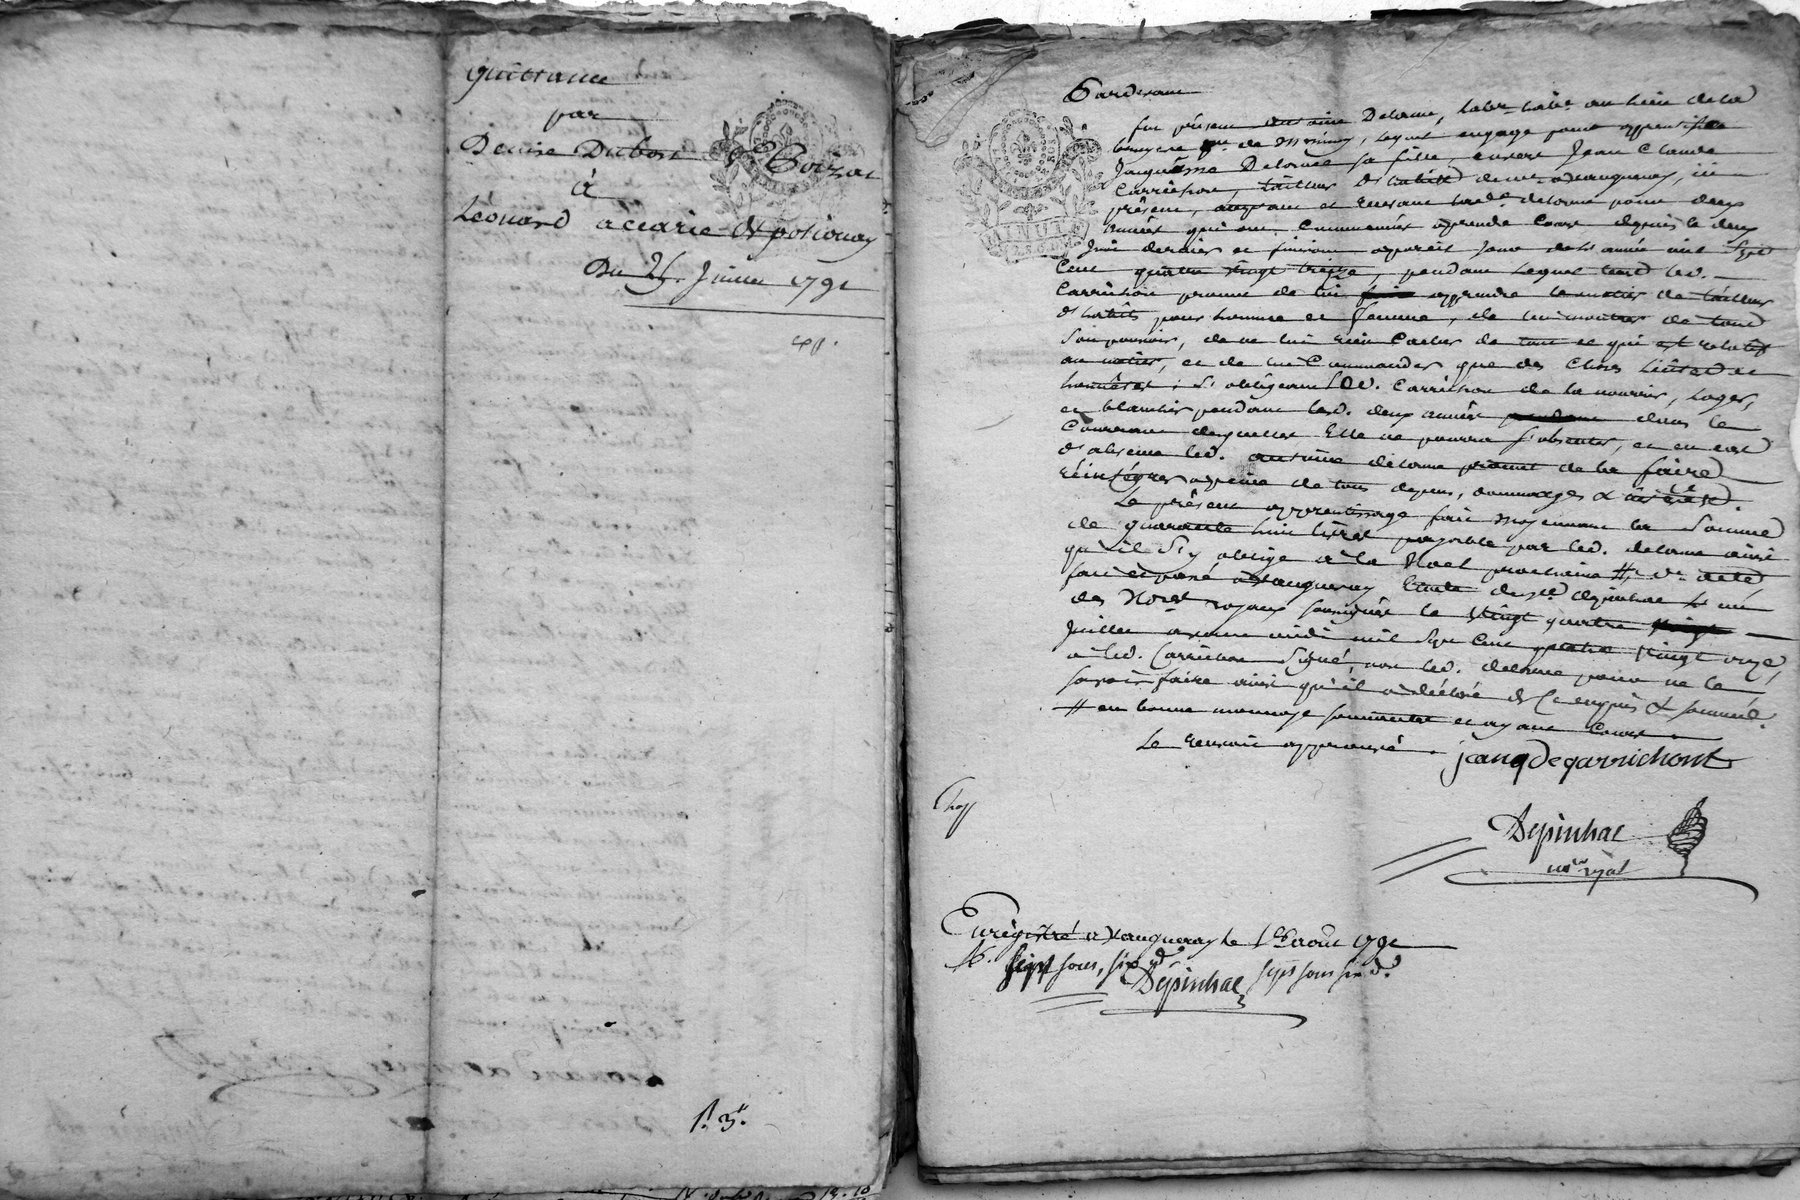 Quittance
par
Denise Dubost & Goizot
à
Léonard accarie de poſionay
Du 25 Juillet 1791
exp.
1# 3s
Pardevant
fut présent antoine Delorme, labr habt au lieu de la
bruyere psse de Messimy, lequel engage pour apprentisse
Jacquême Delorme sa fille, envers Jean Claude
Carrichon, tailleur d'habits demt a Vaugneray, ici
présent, acceptant et recevant lade delorme pour deux
années qui ont Commencées a prendre Cours depuis le deux
Juin dernier et finiront a pareil jour de l'année mil Sept
Cent quatre vingt treize, pendant lequel tems led.
Carrichon promet de lui apprendre le métier de tailleur
d'habits pour homme et femme, de lui montrer de tout
Son pouvoir, de ne lui rien Cacher de tout ce qui est relatif
au métier, et de ne lui Commander que des Choses licites et
honnêtes; S'obligeant led. Carrichon de la nourrir, loger,
et blanchir pendant lesd. deux années dans le
Courrant desquelles Elle ne pourra s'absenter, et en cas
d'absence led. antoine delorme promet de la faire
réintégrer a peine de tous depens, dommages & intérêts.
Le présent apprentissage fait moyennant la Somme
de quarante huit livres payable par led. delorme ainsi
qu'il S'y oblige a la Noel prochaine #,
fait et passé a Vaugneray Etude de me dépinhac L'un
des Nores royaux soussignés le Vingt quatre
Juillet avant midi mil Sept Cent quatre Vingt onze,
a led. Carrichon Signé, non led. delorme pour ne le
savoir faire ainsi qu'il a déclaré de Ce enquis & sommé.
# en bonne monnoye sonnante et ayant Cours.
Le renvoi approuvé.
jean q De garrichont
Dépinhac
nore royal
Enregistré a Vaugneray le 1er août 1791
R. sept sous, six d.
Dépinhac sept sous six d.
MINUTE